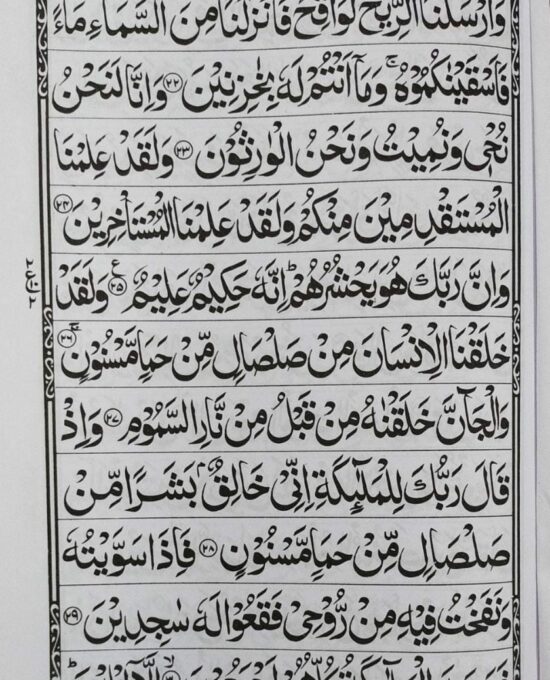 وَاَرۡسَلۡنَا الرِّيٰحَ لَوَاقِحَ فَاَنۡزَلۡنَا مِنَ السَّمَآءِ مَآءً
فَاَسۡقَيۡنٰكُمُوۡهُ ۚ وَمَاۤ اَنۡتُمۡ لَهٗ بِخٰزِنِيۡنَ ﴿۲۲﴾ وَاِنَّا لَنَحۡنُ
نُحۡىٖ وَنُمِيۡتُ وَنَحۡنُ الۡوٰرِثُوۡنَ ﴿۲۳﴾ وَلَقَدۡ عَلِمۡنَا
الۡمُسۡتَقۡدِمِيۡنَ مِنۡكُمۡ وَلَقَدۡ عَلِمۡنَا الۡمُسۡتَاۡخِرِيۡنَ ﴿۲۴﴾
وَاِنَّ رَبَّكَ هُوَ يَحۡشُرُهُمۡ ؕ اِنَّهٗ حَكِيۡمٌ عَلِيۡمٌ ﴿۲۵﴾ ع وَلَقَدۡ
خَلَقۡنَا الۡاِنۡسَانَ مِنۡ صَلۡصَالٍ مِّنۡ حَمَاٍ مَّسۡنُوۡنٍ ﴿۲۶﴾ ۚ
وَالۡجَآنَّ خَلَقۡنٰهُ مِنۡ قَبۡلُ مِنۡ نَّارِ السَّمُوۡمِ ﴿۲۷﴾ وَاِذۡ
قَالَ رَبُّكَ لِلۡمَلٰٓٮِٕكَةِ اِنِّىۡ خَالِقٌۢ بَشَرًا مِّنۡ
صَلۡصَالٍ مِّنۡ حَمَاٍ مَّسۡنُوۡنٍ ﴿۲۸﴾ فَاِذَا سَوَّيۡتُهٗ
وَنَفَخۡتُ فِيۡهِ مِنۡ رُّوۡحِىۡ فَقَعُوۡا لَهٗ سٰجِدِيۡنَ ﴿۲۹﴾